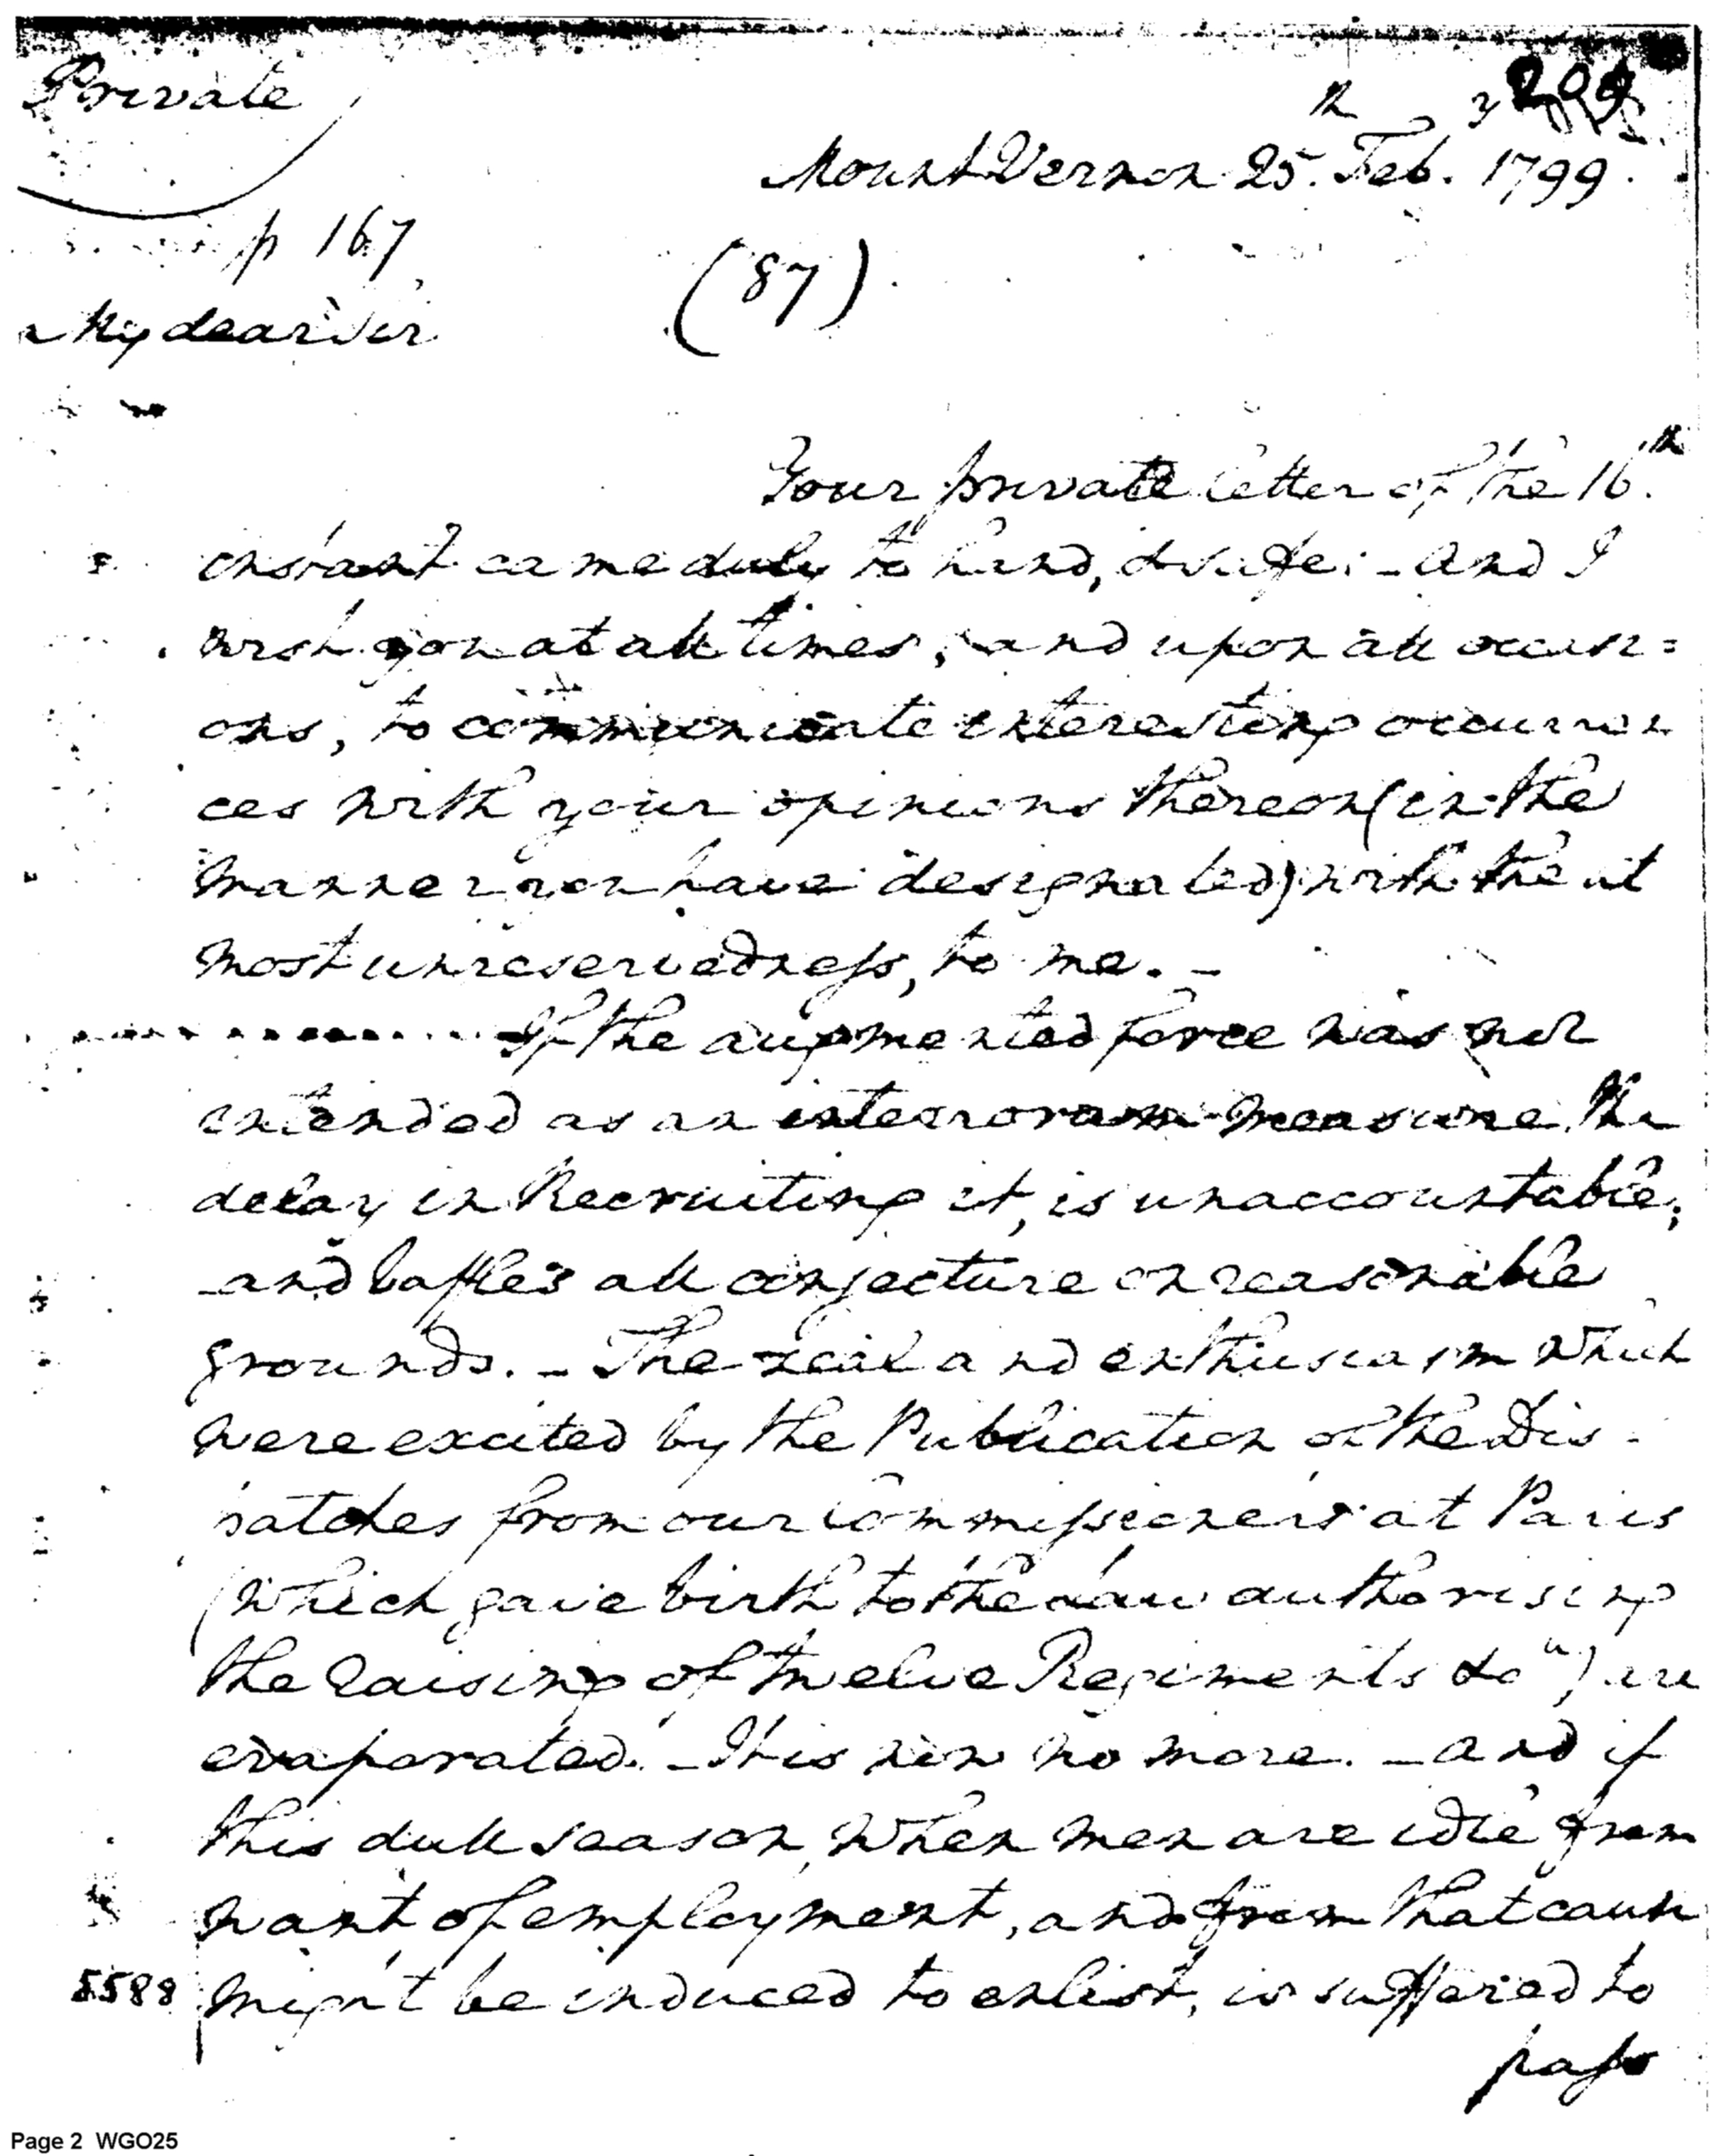 Private
204
Mount Vernon 25th. Feby. 1799.
p 167
(87)
My dear Sir
Your private letter of the 16th.
instant came duly to hand, & safe: – and I
wish you at all times, and upon all occasi=
ons, to communicate interesting occurren
ces with your opinions thereon (in the
manner you have designated) with the ut
most unreservedness, to me. –
If the augmented force was not
intended as an interrorum measure, the
delay in Recruiting it, is unaccountable;
and baffles all conjecture on reasonable
grounds. – The zeal and enthusiasm which
were excited by the Publication of the Dis-
patches from our Commissioners at Paris
(which gave birth to the Law authorising
the raising of twelve Regiments &ca) are
evaporated. – It is now no more. – and if
this dull season, when men are idle from
want of employment, and from that cause
might be induced to enlist, is suffered to
5588
pass
Page 2 WGO25